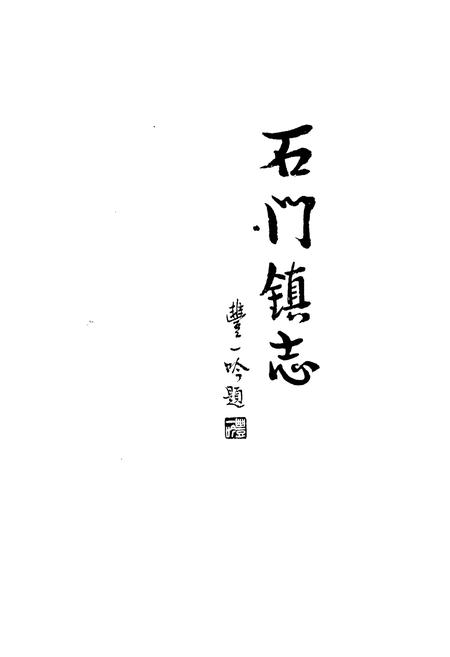 石门镇志
豐一吟題